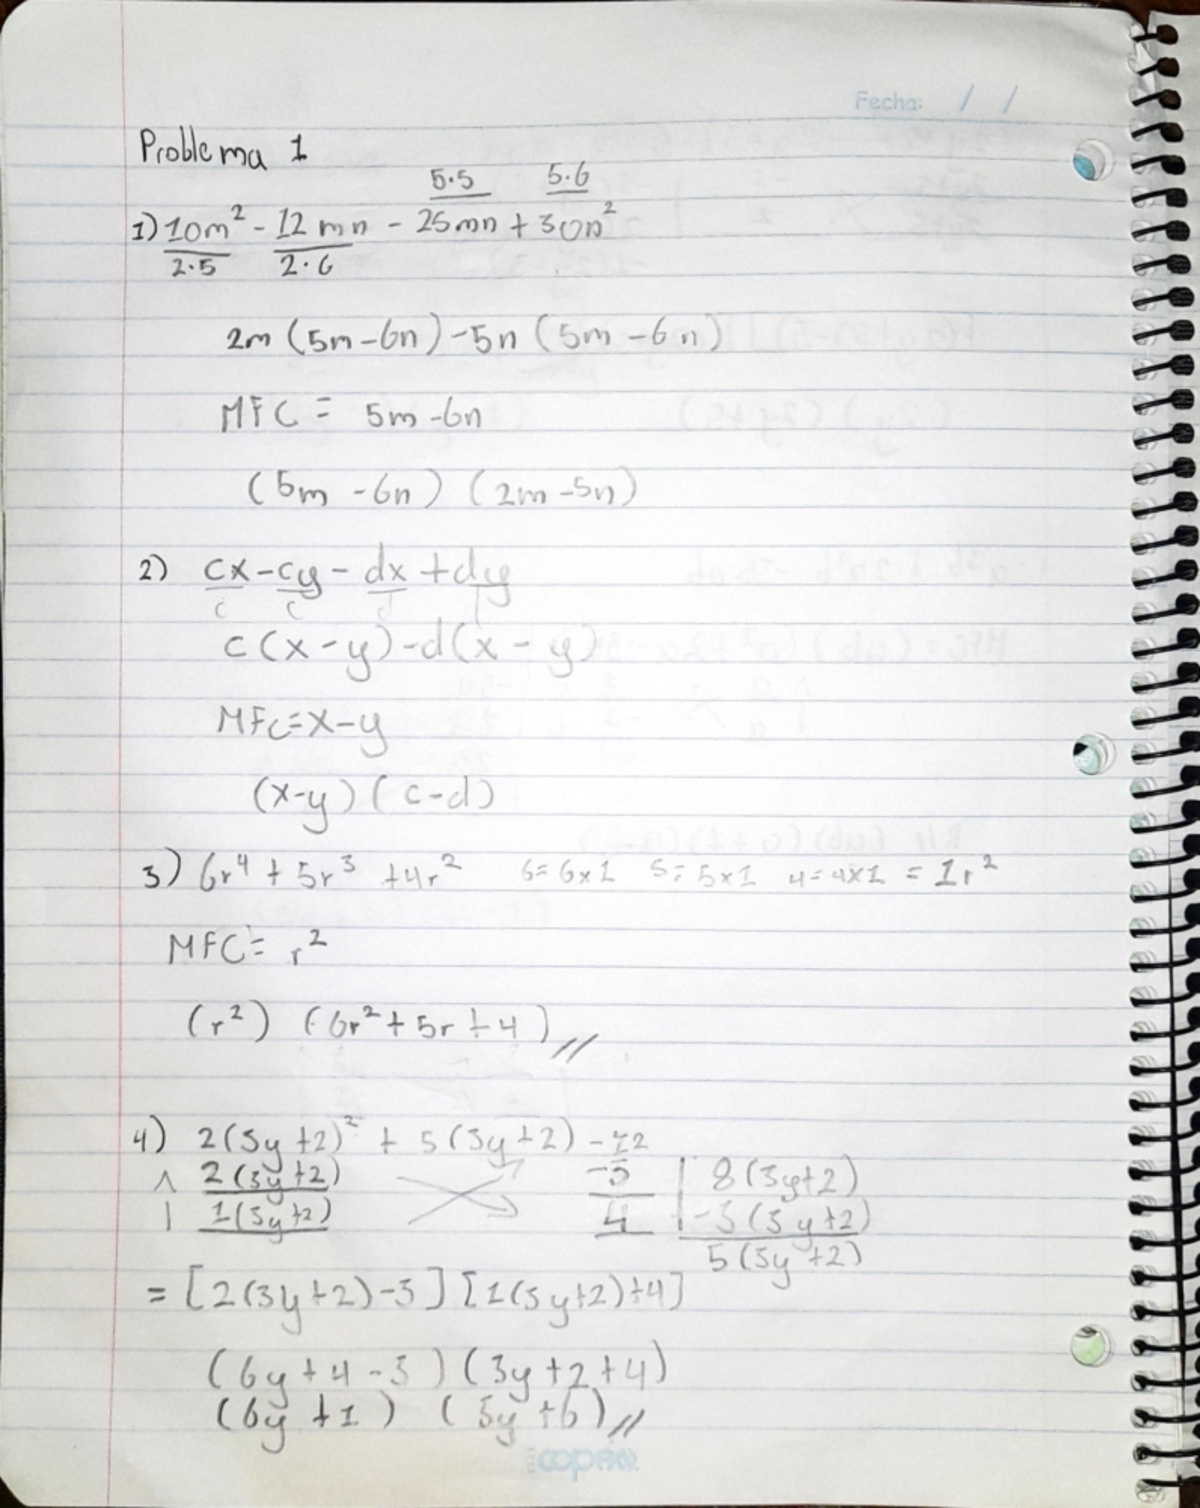 Fecha: / /
Problema 1
5·5 5·6
1) 10m² - 12mn - 25mn + 30n²
2·5 2·6
2m (5m-6n) -5n (5m-6n)
MFC = 5m-6n
(5m-6n) (2m-5n)
2) cx-cy- dx+dy
c c d
c(x-y)-d(x-y)
MFC=x-y
(x-y) (c-d)
3) 6r⁴ + 5r³ +4r² 6=6x1 5=5x1 4=4x1 = 1r²
MFC= r²
(r²) (6r²+5r+4)//
4) 2(3y+2)² + 5(3y+2) -12
2(3y+2) -3 | 8(3y+2)
1(3y+2) 4 | -3(3y+2)
5(3y+2)
= [2(3y+2)-3] [1(3y+2)+4]
(6y+4-3) (3y+2+4)
(6y+1) (3y+6)//